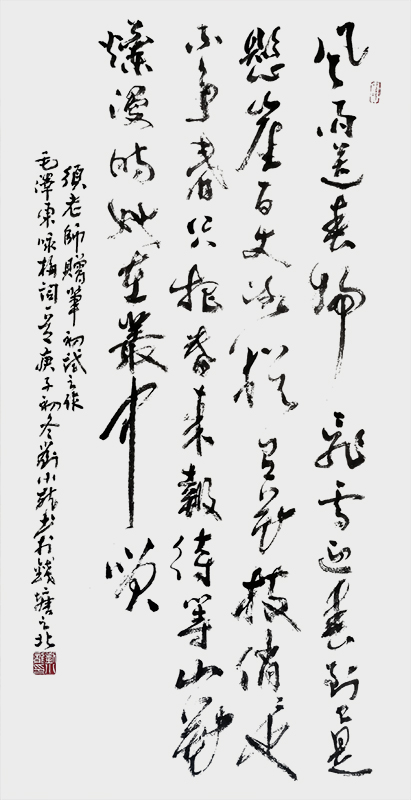 風雨送春歸飛雪迎春到已是
懸崖百丈冰猶有花枝俏俏也
不争春只把春來報待等山花
爛漫時她在叢中笑
須老師贈筆初試之作
毛澤東咏梅詞一首庚子初冬劉小龍書於錢塘之北